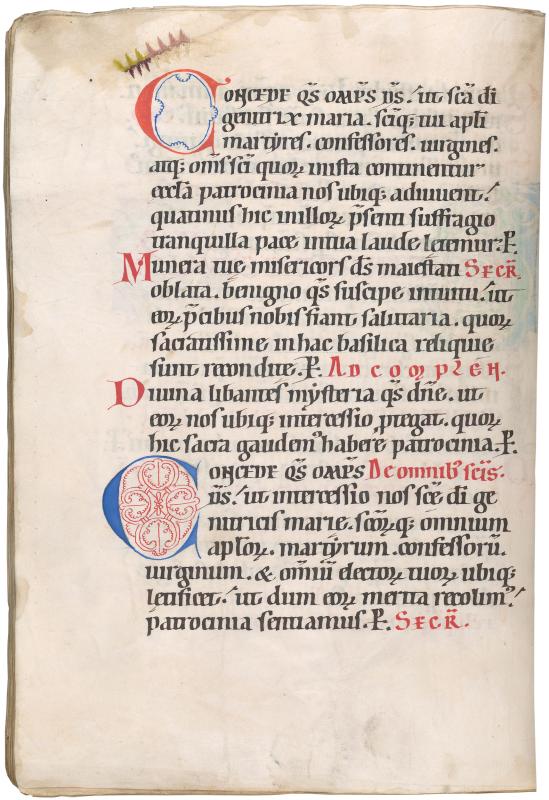 Concede q̄s om̄ps ds̄. ut scā di
genitrix maria. sciq; tui apli
martyres. confessores. uirgines.
atq; om̄s sci quoꝝ inista continentur
eccla patrocinia nos ubiq; adiuuent.
quatinus hic inilloꝝ p̄senti suffragio
tranquilla pace intua laude letemur. P.
Munera tue misericors ds̄ maiestati Secr̄.
oblata. benigno q̄s suscipe intuitu. ut
eoꝝ p̄cibus nobis fiant salutaria. quoꝝ
sacratissime in hac basilica reliquie
sunt recondite. P. Ad complen.
Diuina libantes mysteria q̄s dn̄e. ut
eoꝝ nos ubiq; intercessio ꝓtegat. quoꝝ
hic sacra gaudem᷒ habere patrocinia. P.
Concede q̄s om̄ps De omnib᷒ scīs.
ds̄. ut intercessio nos sce di ge
nitricis marie. scoꝝq; omnium
aploꝝ. martyrum. confessoꝝū.
uirginum. & om̄iū electoꝝ tuoꝝ ubiq;
letificet. ut dum eoꝝ merita recolim᷒.
patrocinia sentiamus. P. Secr̄.